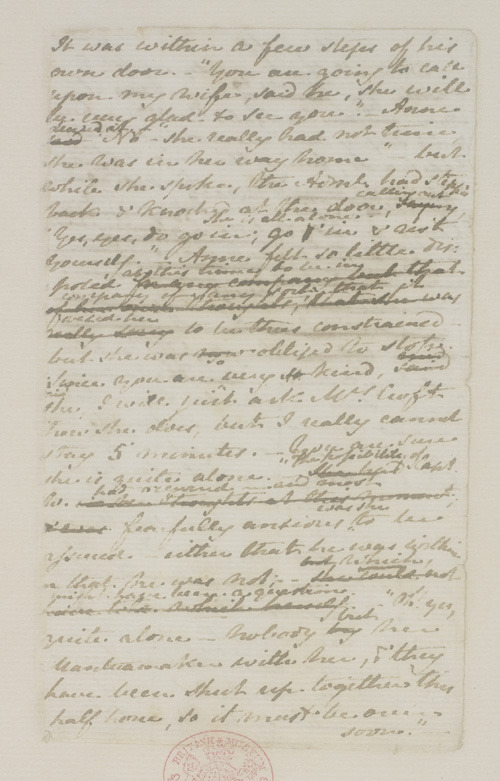 It was within a few steps of his
own door. — "You are going to call
upon my wife, said he, she will
be very glad to see you." — Anne
denied it.
"No — she really had not time
she was in her way home" — but
while she spoke, the Adml. had stepd
calling out
back & knocked at the door,
"Yes, yes, do go in; she is all alone. go in & rest
yourself." — Anne felt so little dis:
posed at this time to be in
company of any sort, that it
vexed her to be thus constrained —
but she was obliged to stop.
"Since you are so very kind, said
she, I will just ask Mrs. Croft
how she does, but I really cannot
stay 5 minutes. — You are sure
she is quite alone." —
The possibility of Capt.
W. had occurred — and most
fearfully anxious was she to be
assured — either that he was within
or that he was not; — which,
might have been a question. — "Oh! yes,
quite alone — Nobody but her
Mantuamaker with her, & they
have been shut up together this
half hour, so it must be over
soon." —
BRITISH MUSEUM